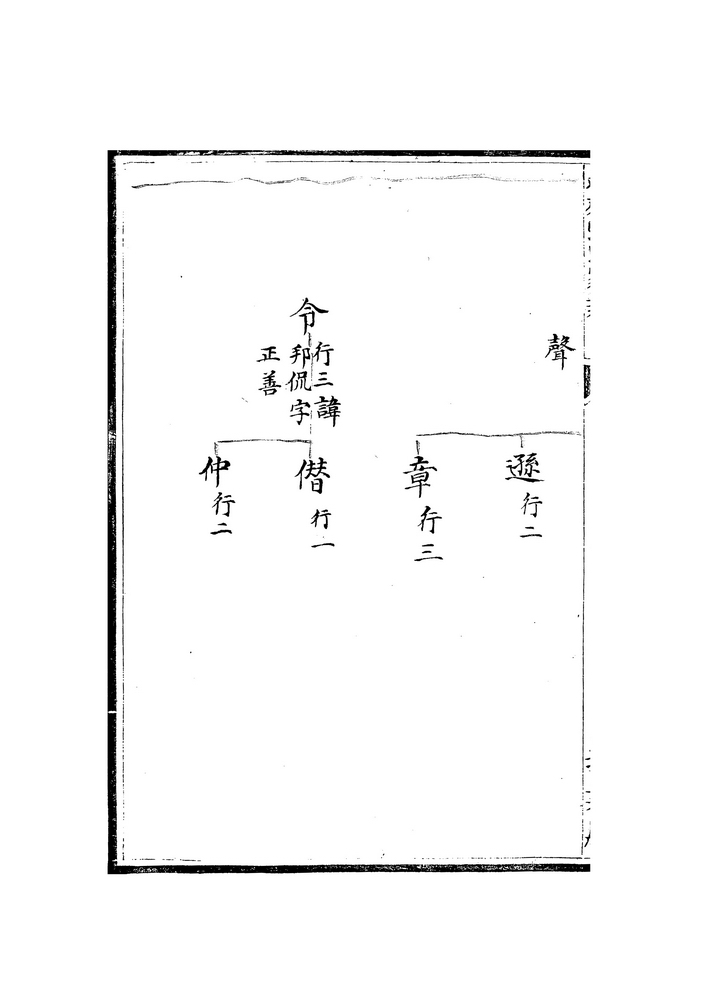 聲
遜 行二
章 行三
令 行三諱
邦侃字
正善
僣 行一
仲 行二